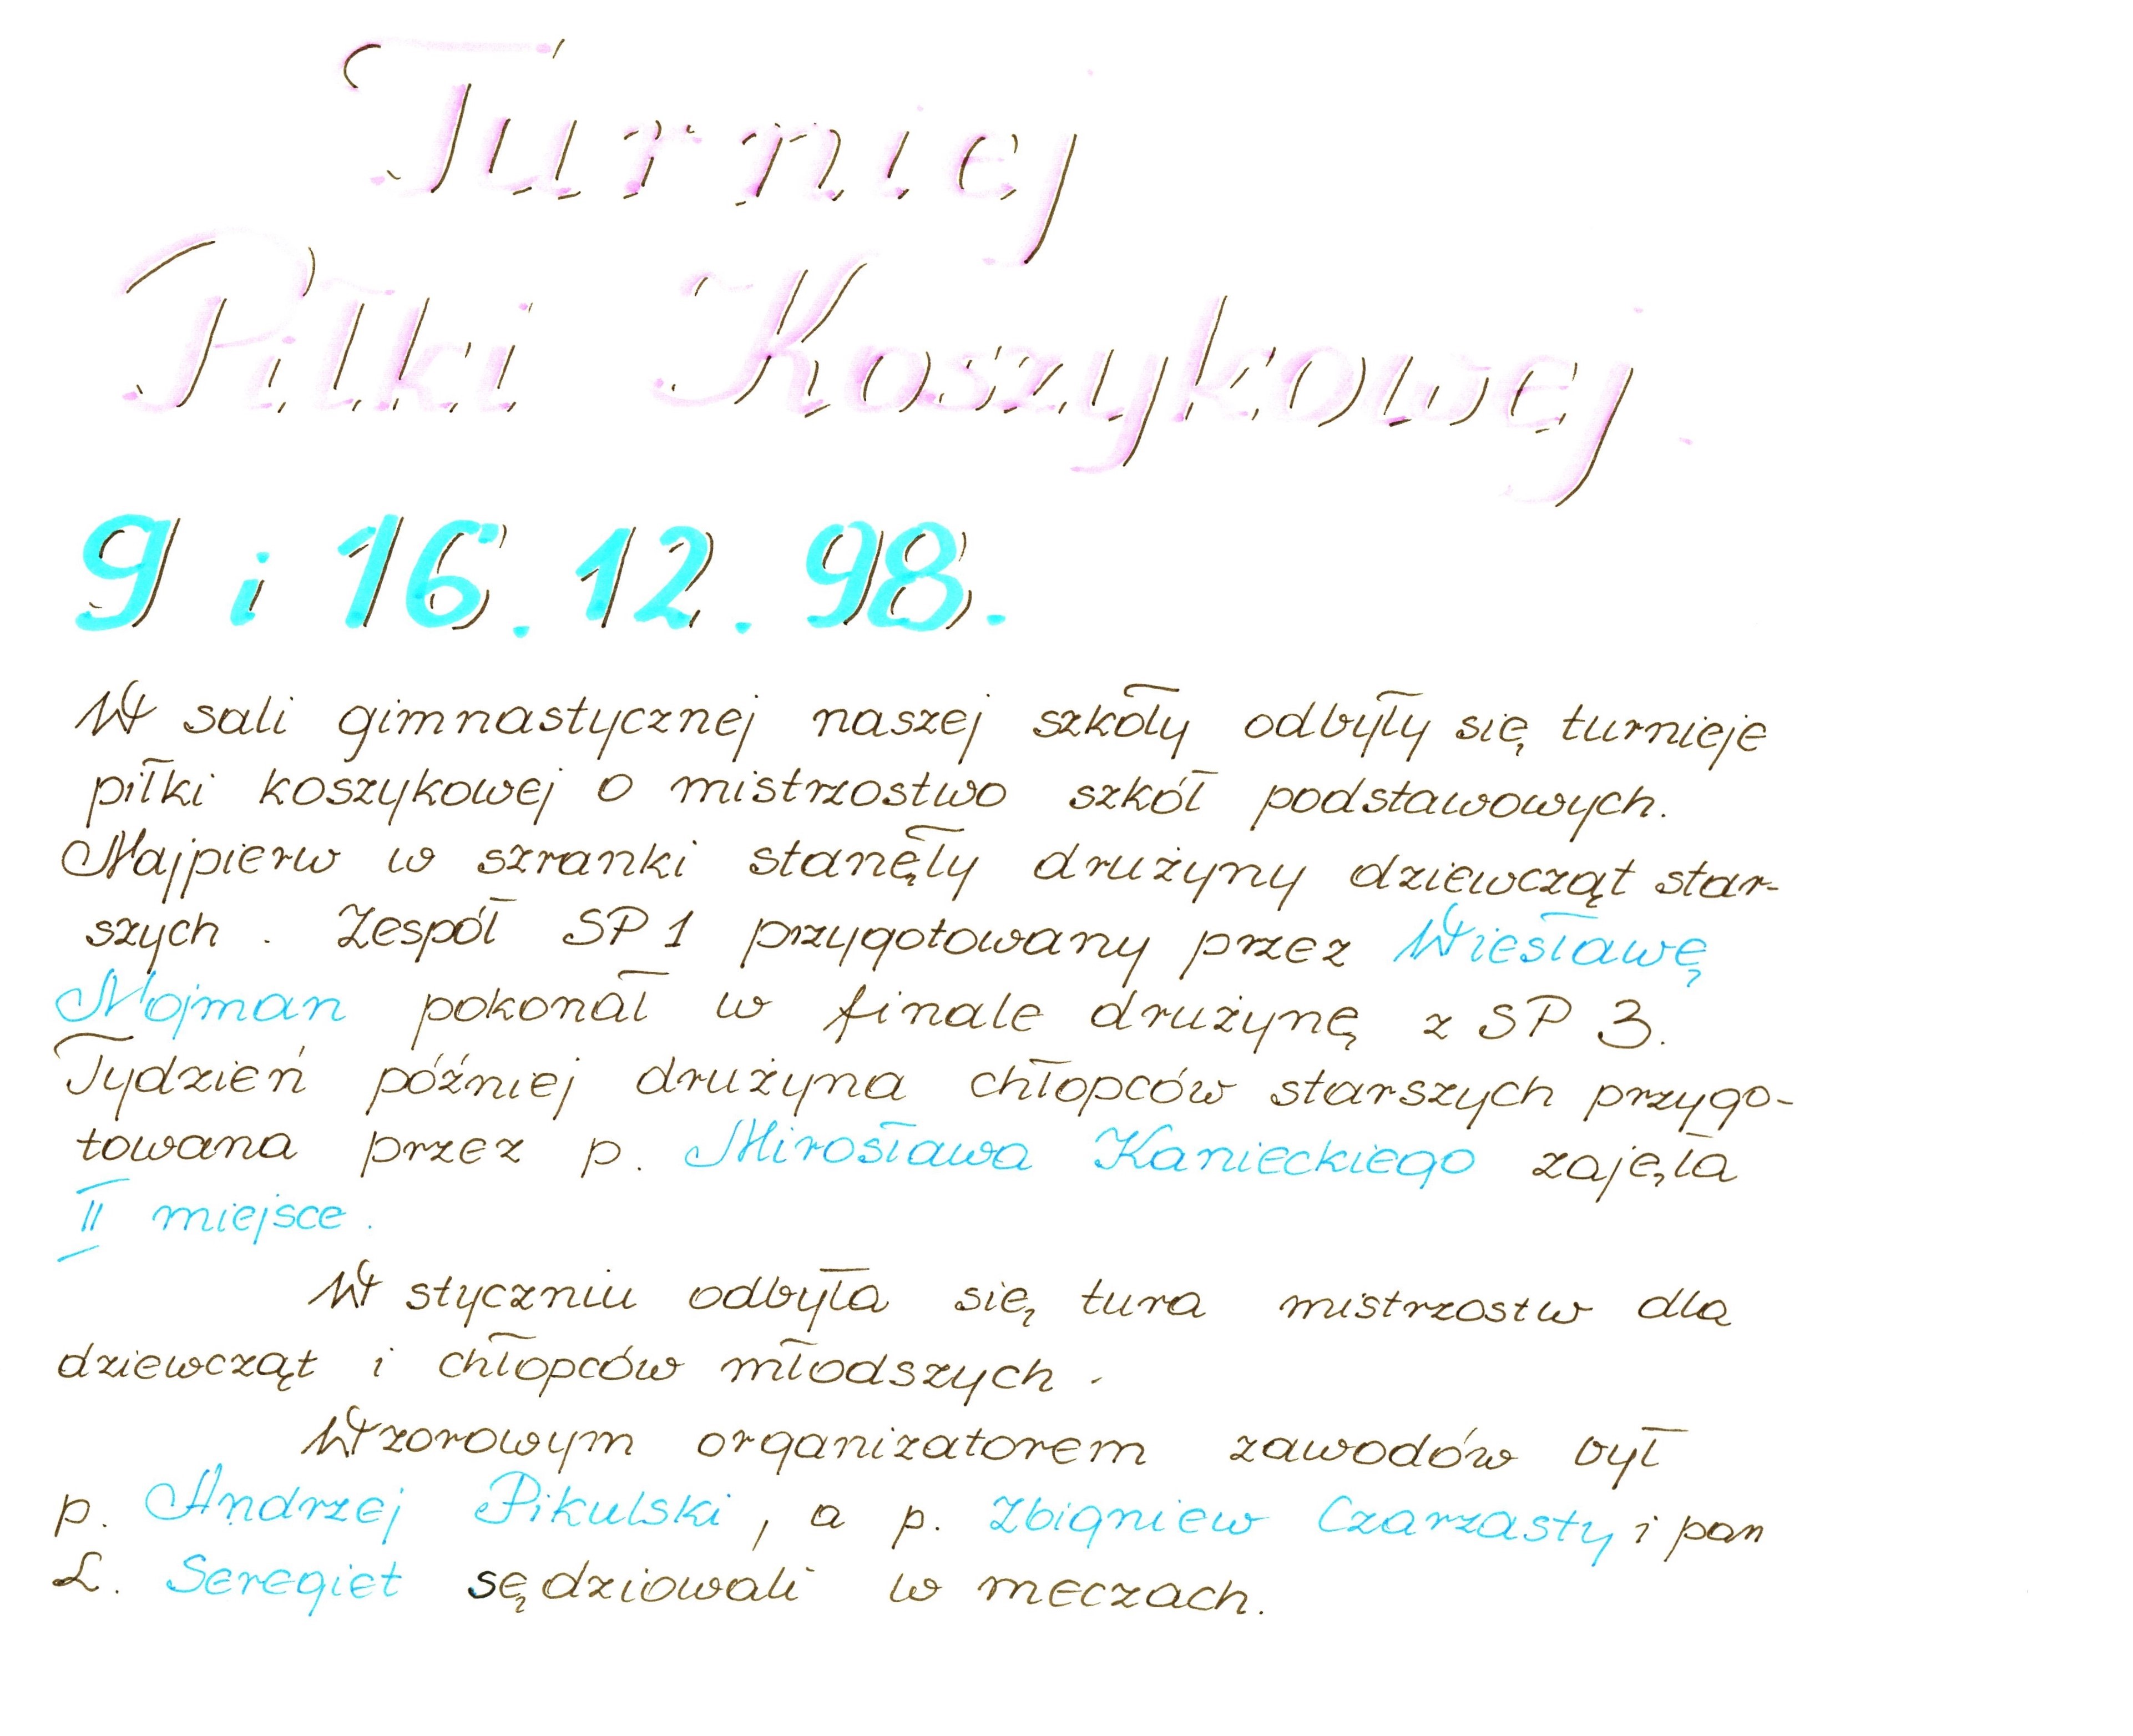 Turniej
Piłki Koszykowej
9 i 16. 12. 98.
W sali gimnastycznej naszej szkoły odbyły się turnieje
piłki koszykowej o mistrzostwo szkół podstawowych.
Najpierw w szranki stanęły drużyny dziewcząt star-
szych. Zespół SP 1 przygotowany przez Wiesławę
Nojman pokonał w finale drużynę z SP 3.
Tydzień później drużyna chłopców starszych przygo-
towana przez p. Mirosława Kanieckiego zajęła
II miejsce.
W styczniu odbyła się tura mistrzostw dla
dziewcząt i chłopców młodszych.
Wzorowym organizatorem zawodów był
p. Andrzej Pikulski, a p. Zbigniew Czarzasty i pan
L. Seregiet sędziowali w meczach.